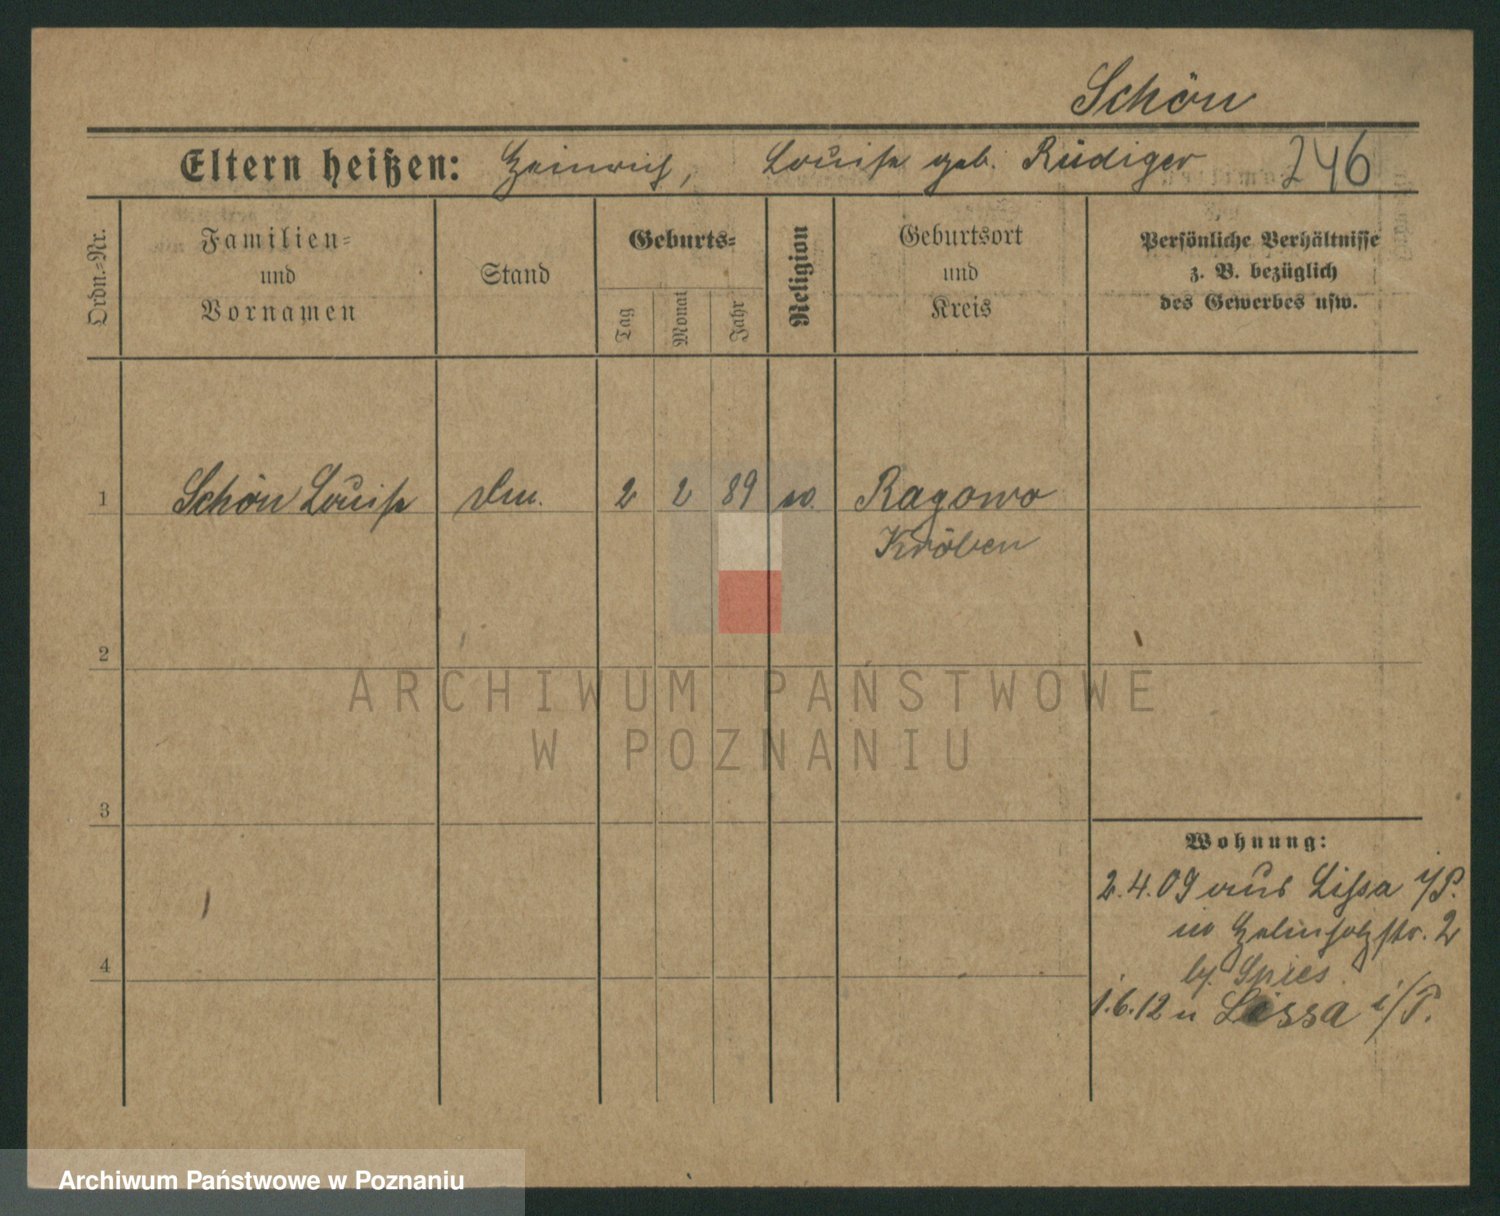 Schön
Eltern heißen: Heinrich, Louise geb. Rüdiger 246
Ordn.-Nr.
Familien-
und
Vornamen
Stand
Geburts-
Tag
Monat
Jahr
Religion
Geburtsort
und
Kreis
Persönliche Verhältnisse
z. B. bezüglich
des Gewerbes usw.
1 Schön Louise 2 2 89 Ragowo
Kröben
2
3
4
Wohnung:
2.4.09 aus Lissa i/P.
in str. 2
by. Spies
1.6.12 n Lissa i/P.
ARCHIWUM PAŃSTWOWE
W POZNANIU
Archiwum Państwowe w Poznaniu